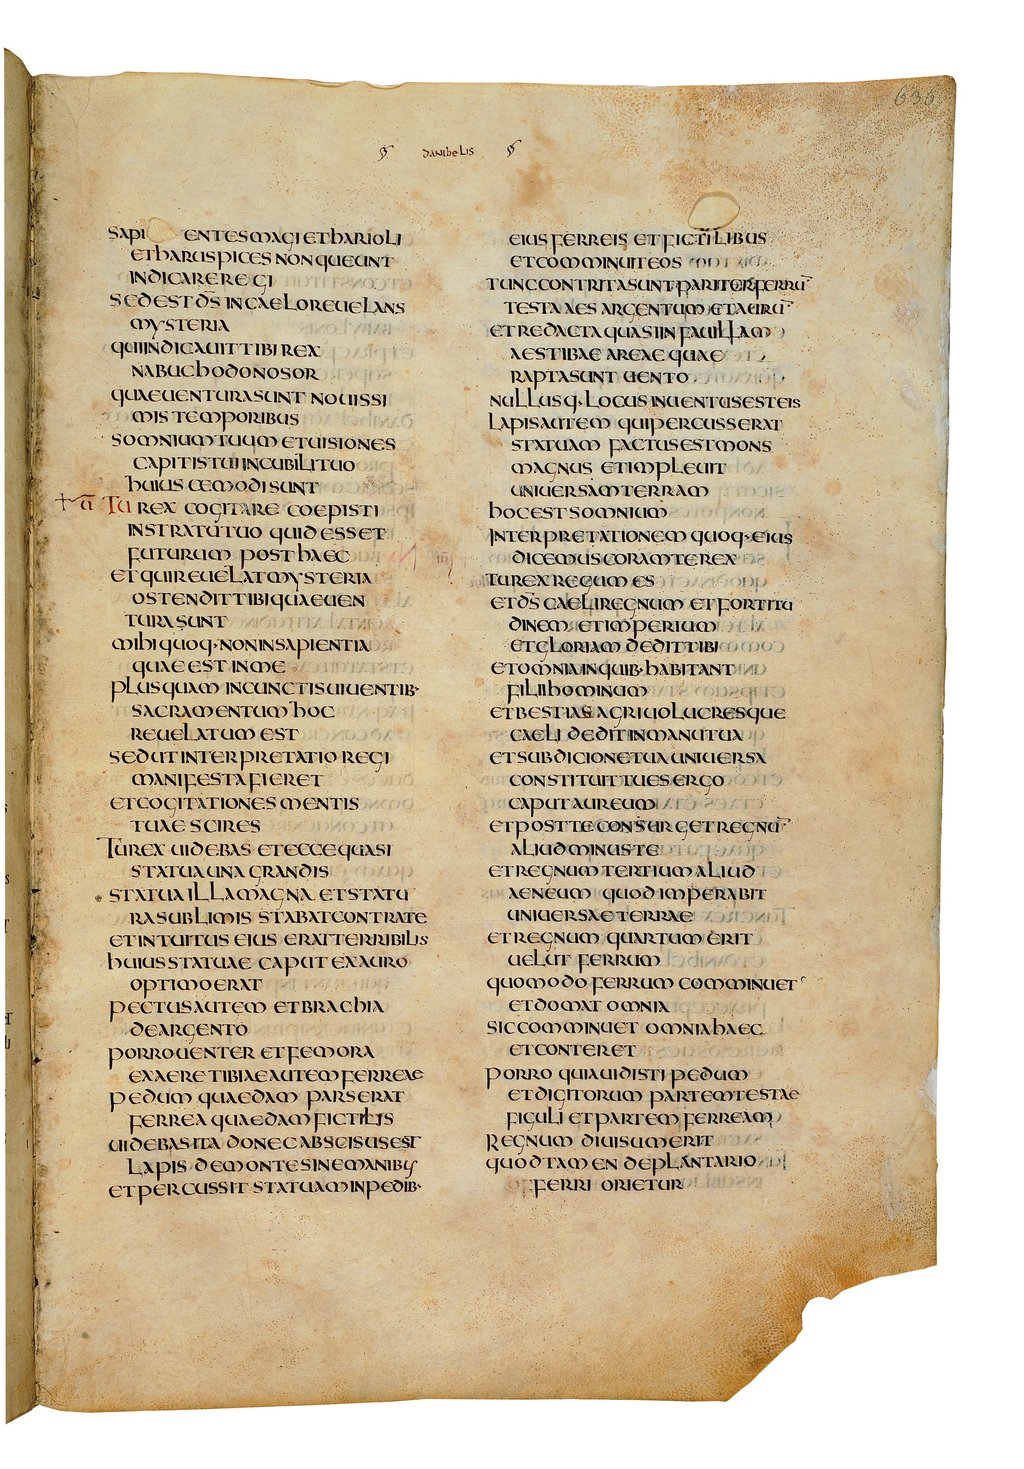 636
danihelis
SAPIENTES MAGI ET hARIOLI
ET hARUSPICES NON QUEUNT
INDICARE REGI
SED EST D̄S IN CAELO REUELANS
MYSTERIA
QUI INDICAUIT TIBI REX
NABUChODONOSOR
QUAE UENTURA SUNT NOUISSI
MIS TEMPORIBUS
SOMNIUM TUUM ET UISIONES
CAPITIS TUI IN CUBILI TUO
hUIUSCEMODI SUNT
TU REX COGITARE COEPISTI
IN STRATU TUO QUID ESSET
FUTURUM POST hAEC
ET QUI REUELAT MYSTERIA
OSTENDIT TIBI QUAE UEN
TURA SUNT
MIhI QUOQ· NON IN SAPIENTIA
QUAE EST IN ME
PLUS QUAM IN CUNCTIS UIUENTIB·
SACRAMENTUM hOC
REUELATUM EST
SED UT INTERPRETATIO REGI
MANIFESTA FIERET
ET COGITATIONES MENTIS
TUAE SCIRES
TU REX UIDEBAS ET ECCE QUASI
STATUA UNA GRANDIS
STATUA ILLA MAGNA ET STATU
RA SUBLIMIS STABAT CONTRA TE
ET INTUITUS EIUS ERAT TERRIBILIS
hUIUS STATUAE CAPUT EX AURO
OPTIMO ERAT
PECTUS AUTEM ET BRAChIA
DE ARGENTO
PORRO UENTER ET FEMORA
EX AERE TIBIAE AUTEM FERREAE
PEDUM QUAEDAM PARS ERAT
FERREA QUAEDAM FICTILIS
UIDEBAS ITA DONEC ABSCISUS EST
LAPIS DE MONTE SINE MANIBUS
ET PERCUSSIT STATUAM IN PEDIB·
EIUS FERREIS ET FICTILIBUS
ET COMMINUIT EOS
TUNC CONTRITA SUNT PARITER FERRŪ
TESTA AES ARGENTUM ET AURŪ
ET REDACTA QUASI IN FAUILLAM
AESTIBAE AREAE QUAE
RAPTA SUNT UENTO
NULLUSQ· LOCUS INUENTUS EST EIS
LAPIS AUTEM QUI PERCUSSERAT
STATUAM FACTUS EST MONS
MAGNUS ET IMPLEUIT
UNIUERSAM TERRAM
hOC EST SOMNIUM
INTERPRETATIONEM QUOQ· EIUS
DICEMUS CORAM TE REX
TU REX REGUM ES
ET D̄S CAELI REGNUM ET FORTITU
DINEM ET IMPERIUM
ET GLORIAM DEDIT TIBI
ET OMNIA IN QUIB· hABITANT
FILII hOMINUM
ET BESTIAS AGRI UOLUCRESQUE
CAELI DEDIT IN MANU TUA
ET SUB DICIONE TUA UNIUERSA
CONSTITUIT TU ES ERGO
CAPUT AUREUM
ET POST TE CONSURGET REGNŪ
ALIUD MINUS TE
ET REGNUM TERTIUM ALIUD
AENEUM QUOD IMPERABIT
UNIUERSAE TERRAE
ET REGNUM QUARTUM ERIT
UELUT FERRUM
QUOMODO FERRUM COMMINUET
ET DOMAT OMNIA
SIC COMMINUET OMNIA hAEC
ET CONTERET
PORRO QUIA UIDISTI PEDUM
ET DIGITORUM PARTEM TESTAE
FIGULI ET PARTEM FERREAM
REGNUM DIUISUM ERIT
QUOD TAMEN DE PLANTARIO
FERRI ORIETUR